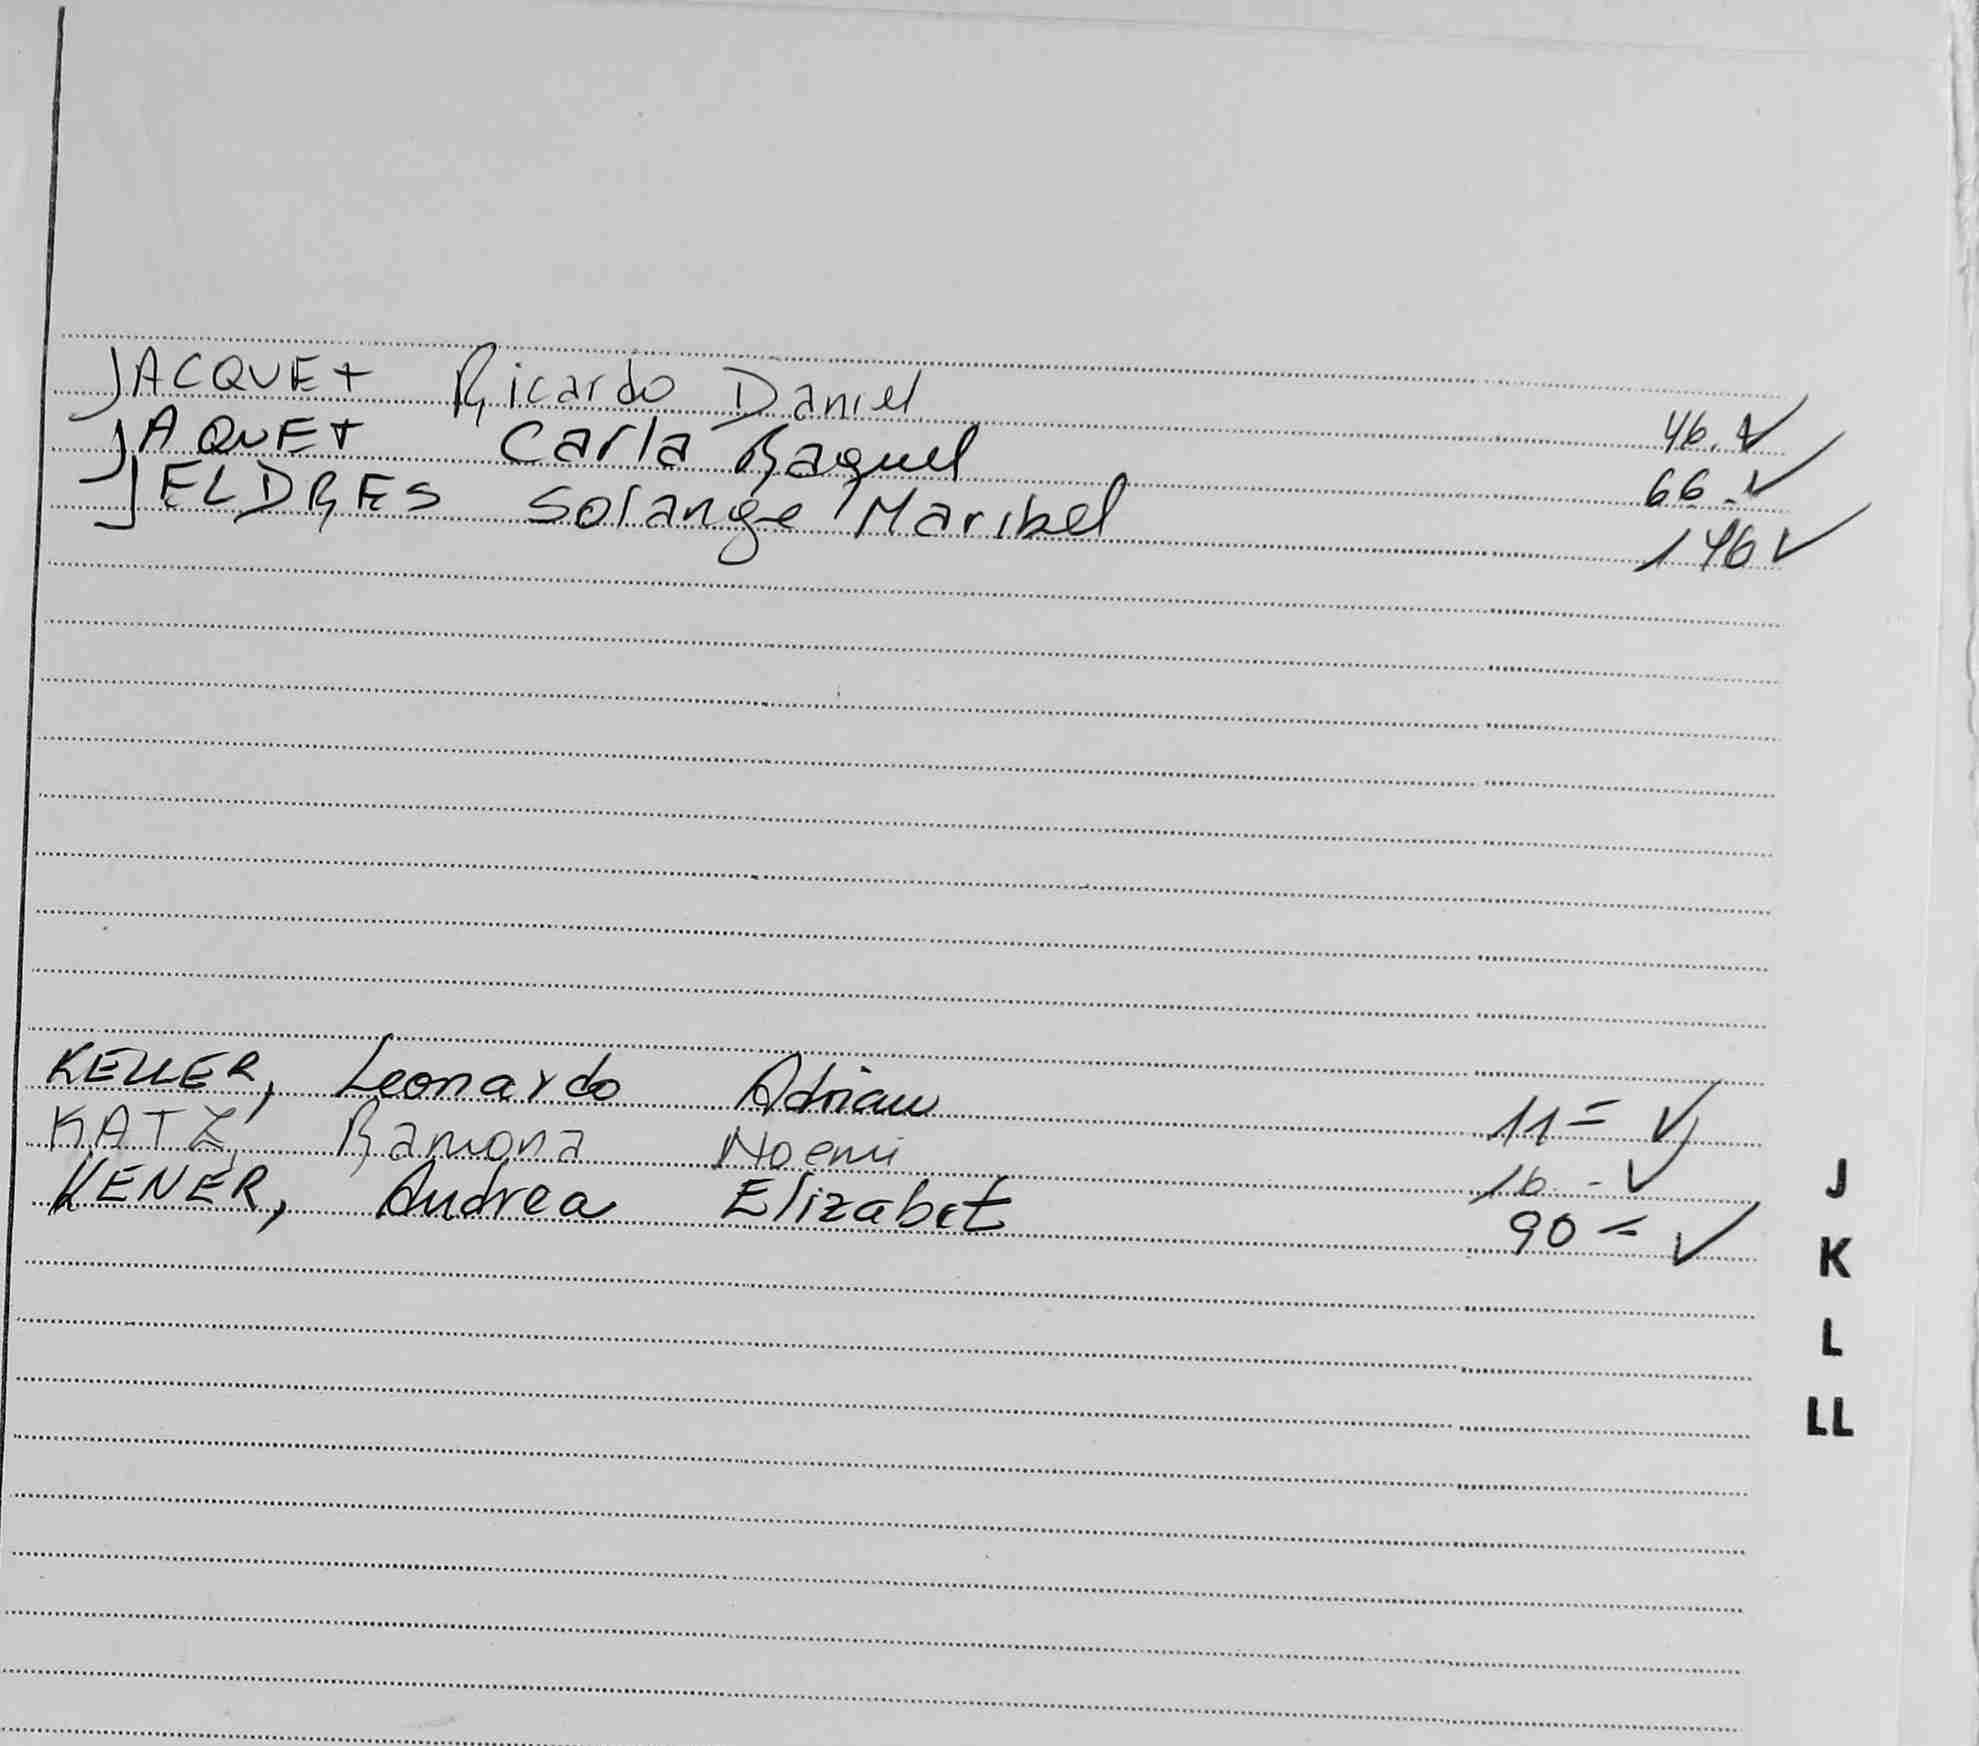 JACQUET Ricardo Daniel 46. ✓
JAQUET Carla Raquel 66.- ✓
JELDRES Solange Maribel 146 ✓
KELLER, Leonardo Adrian 11= ✓
KATZ, Ramona Noemi 16.- ✓
KENER, Andrea Elizabet 90= ✓
J
K
L
LL